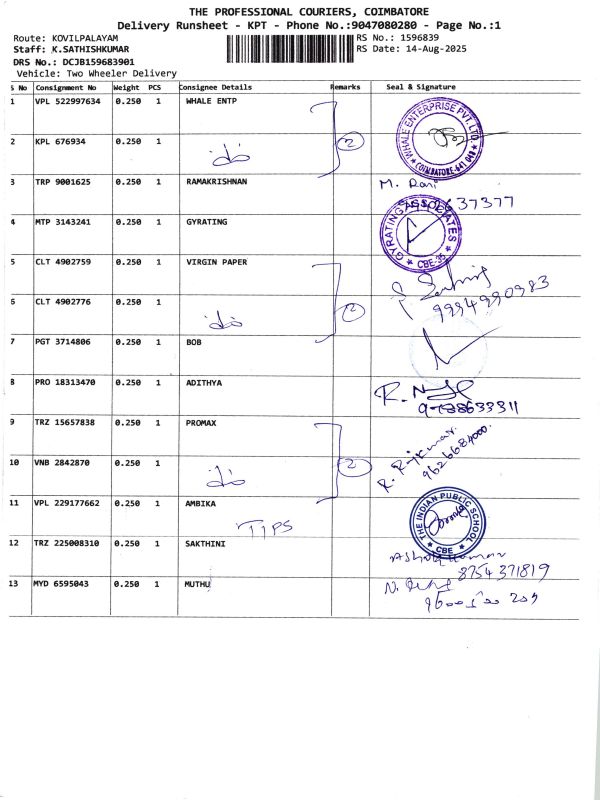 THE PROFESSIONAL COURIERS, COIMBATORE
Delivery Runsheet - KPT - Phone No.:9047080280 - Page No.:1
Route: KOVILPALAYAM
RS No.: 1596839
Staff: K.SATHISHKUMAR
RS Date: 14-Aug-2025
DRS No.: DCJB159683901
Vehicle: Two Wheeler Delivery
S No Consignment No Weight PCS Consignee Details Remarks Seal & Signature
1 VPL 522997634 0.250 1 WHALE ENTP
WHALE ENTERPRISE PVT. LTD. COIMBATORE-641 048
2 KPL 676934 0.250 1 2
3 TRP 9001625 0.250 1 RAMAKRISHNAN M. Rani
37377
4 MTP 3143241 0.250 1 GYRATING
GYRATING ASSOCIATES CBE-35
5 CLT 4902759 0.250 1 VIRGIN PAPER
9994990983
6 CLT 4902776 0.250 1 2
7 PGT 3714806 0.250 1 BOB
8 PRO 18313470 0.250 1 ADITHYA
9788633311
9 TRZ 15657838 0.250 1 PROMAX
R. Rajkumar.
9626684000.
10 VNB 2842870 0.250 1 2
11 VPL 229177662 0.250 1 AMBIKA
THE INDIAN PUBLIC SCHOOL CBE
TIPS
12 TRZ 225008310 0.250 1 SAKTHINI
Ashok Kumar
8754371819
13 MYD 6595043 0.250 1 MUTHU